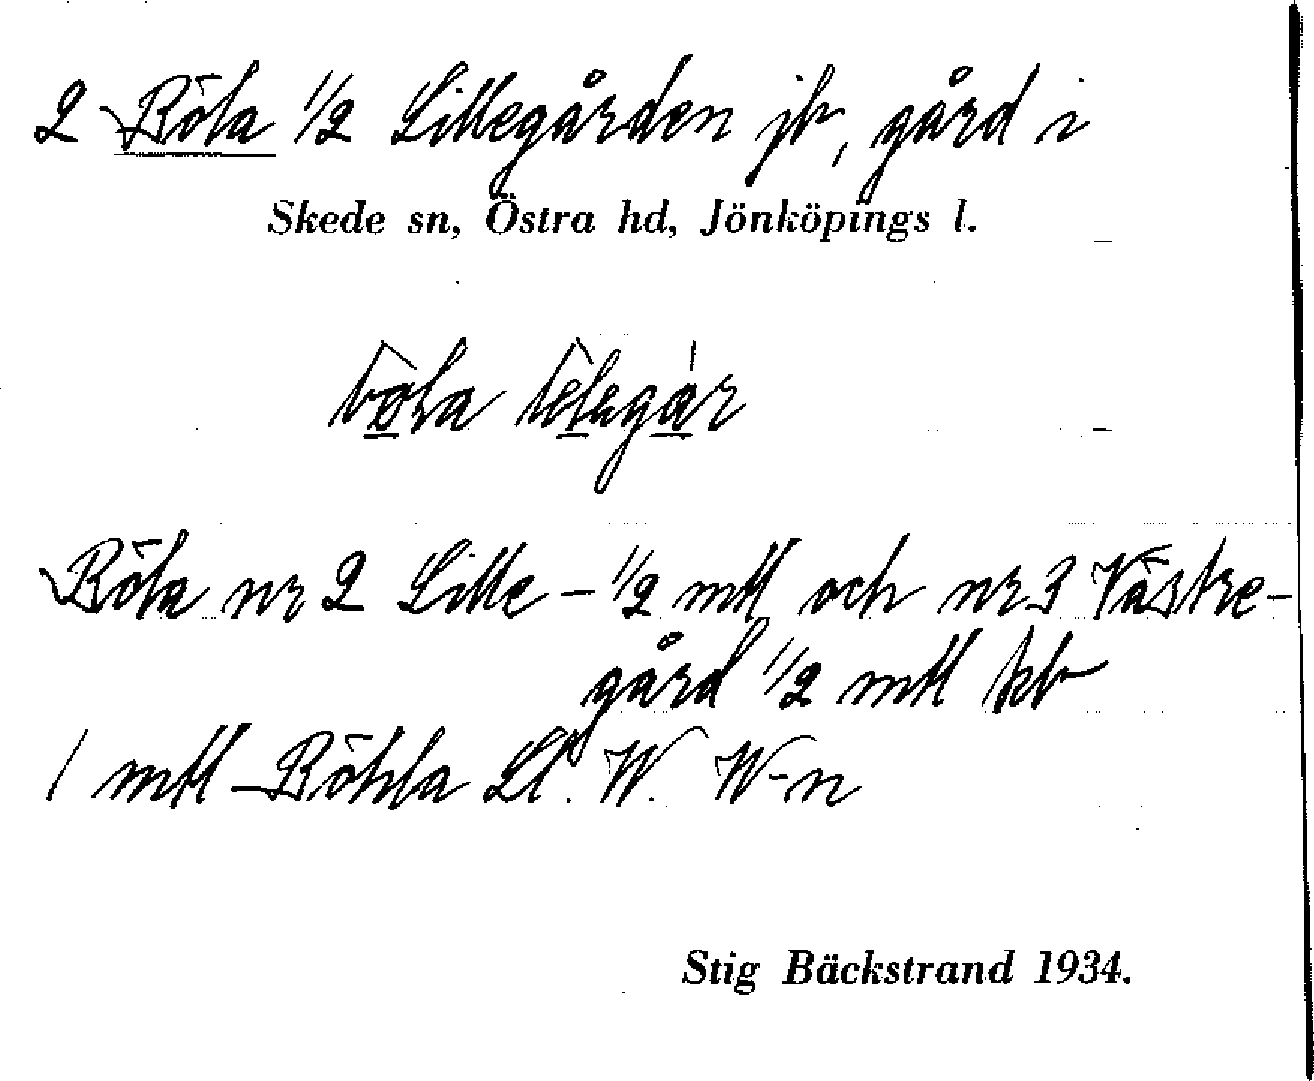 2 Böla 1/2 Lillegården jb, gård i
Skede sn, Östra hd, Jönköpings l.
Böla nr 2 Lille - 1/2 mtl och nr 3 Västre-
gård 1/2 mtl kb
1 mtl Böhla Ll. W. W-n
Stig Bäckstrand 1934.